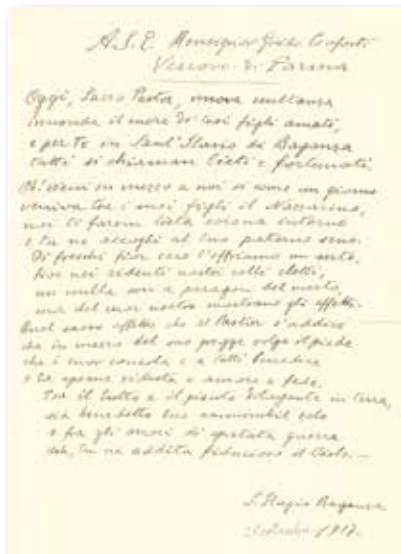 A. S. E. Monsignor Guido Conforti
Vescovo di Parma
Oggi, Sacro Pastor, nuova esultanza
innonda il cuore di tuoi figli amati,
e per te in Sant'Ilario di Baganza
tutti si chiaman lieti e fortunati.
in mezzo a noi si come un giorno
veniva tra i suoi figli il Nazzareno,
noi ti farem lieta corona intorno
e tu ne accogli al tuo paterno seno.
Di freschi fior ecco t'offriamo un serto,
fior nei ridenti nostri colli eletti,
un nulla son a paragon del merto,
ma del cuor nostro mostrano gli affetti.
Quel sacro affetto che al Pastor s'addice
che in mezzo del suo gregge volge il piede
che i cuor consola e a tutti benedice
e la speme ridesta e amore e fede.
Tra il lutto e il pianto in terra,
sia benedetto tuo zelo
e fra gli orrori di spietata guerra
ne addita fiducioso il Cielo.
S. Ilario Baganza
1917.